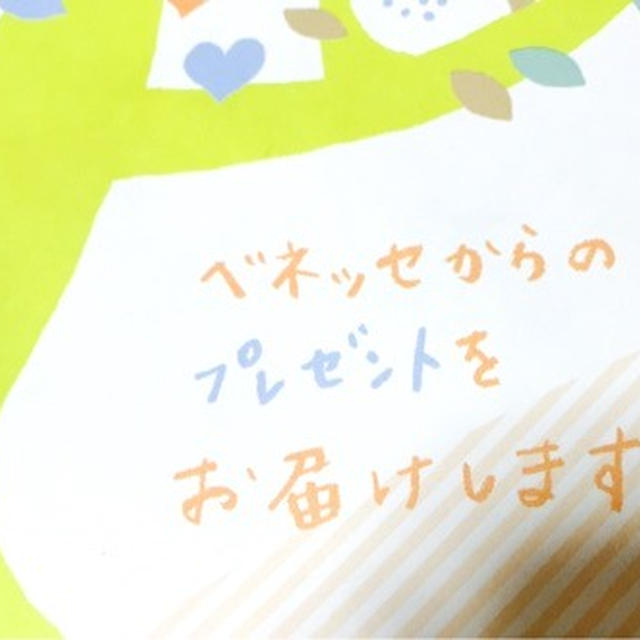 ベネッセからの
プレゼントを
お届けします